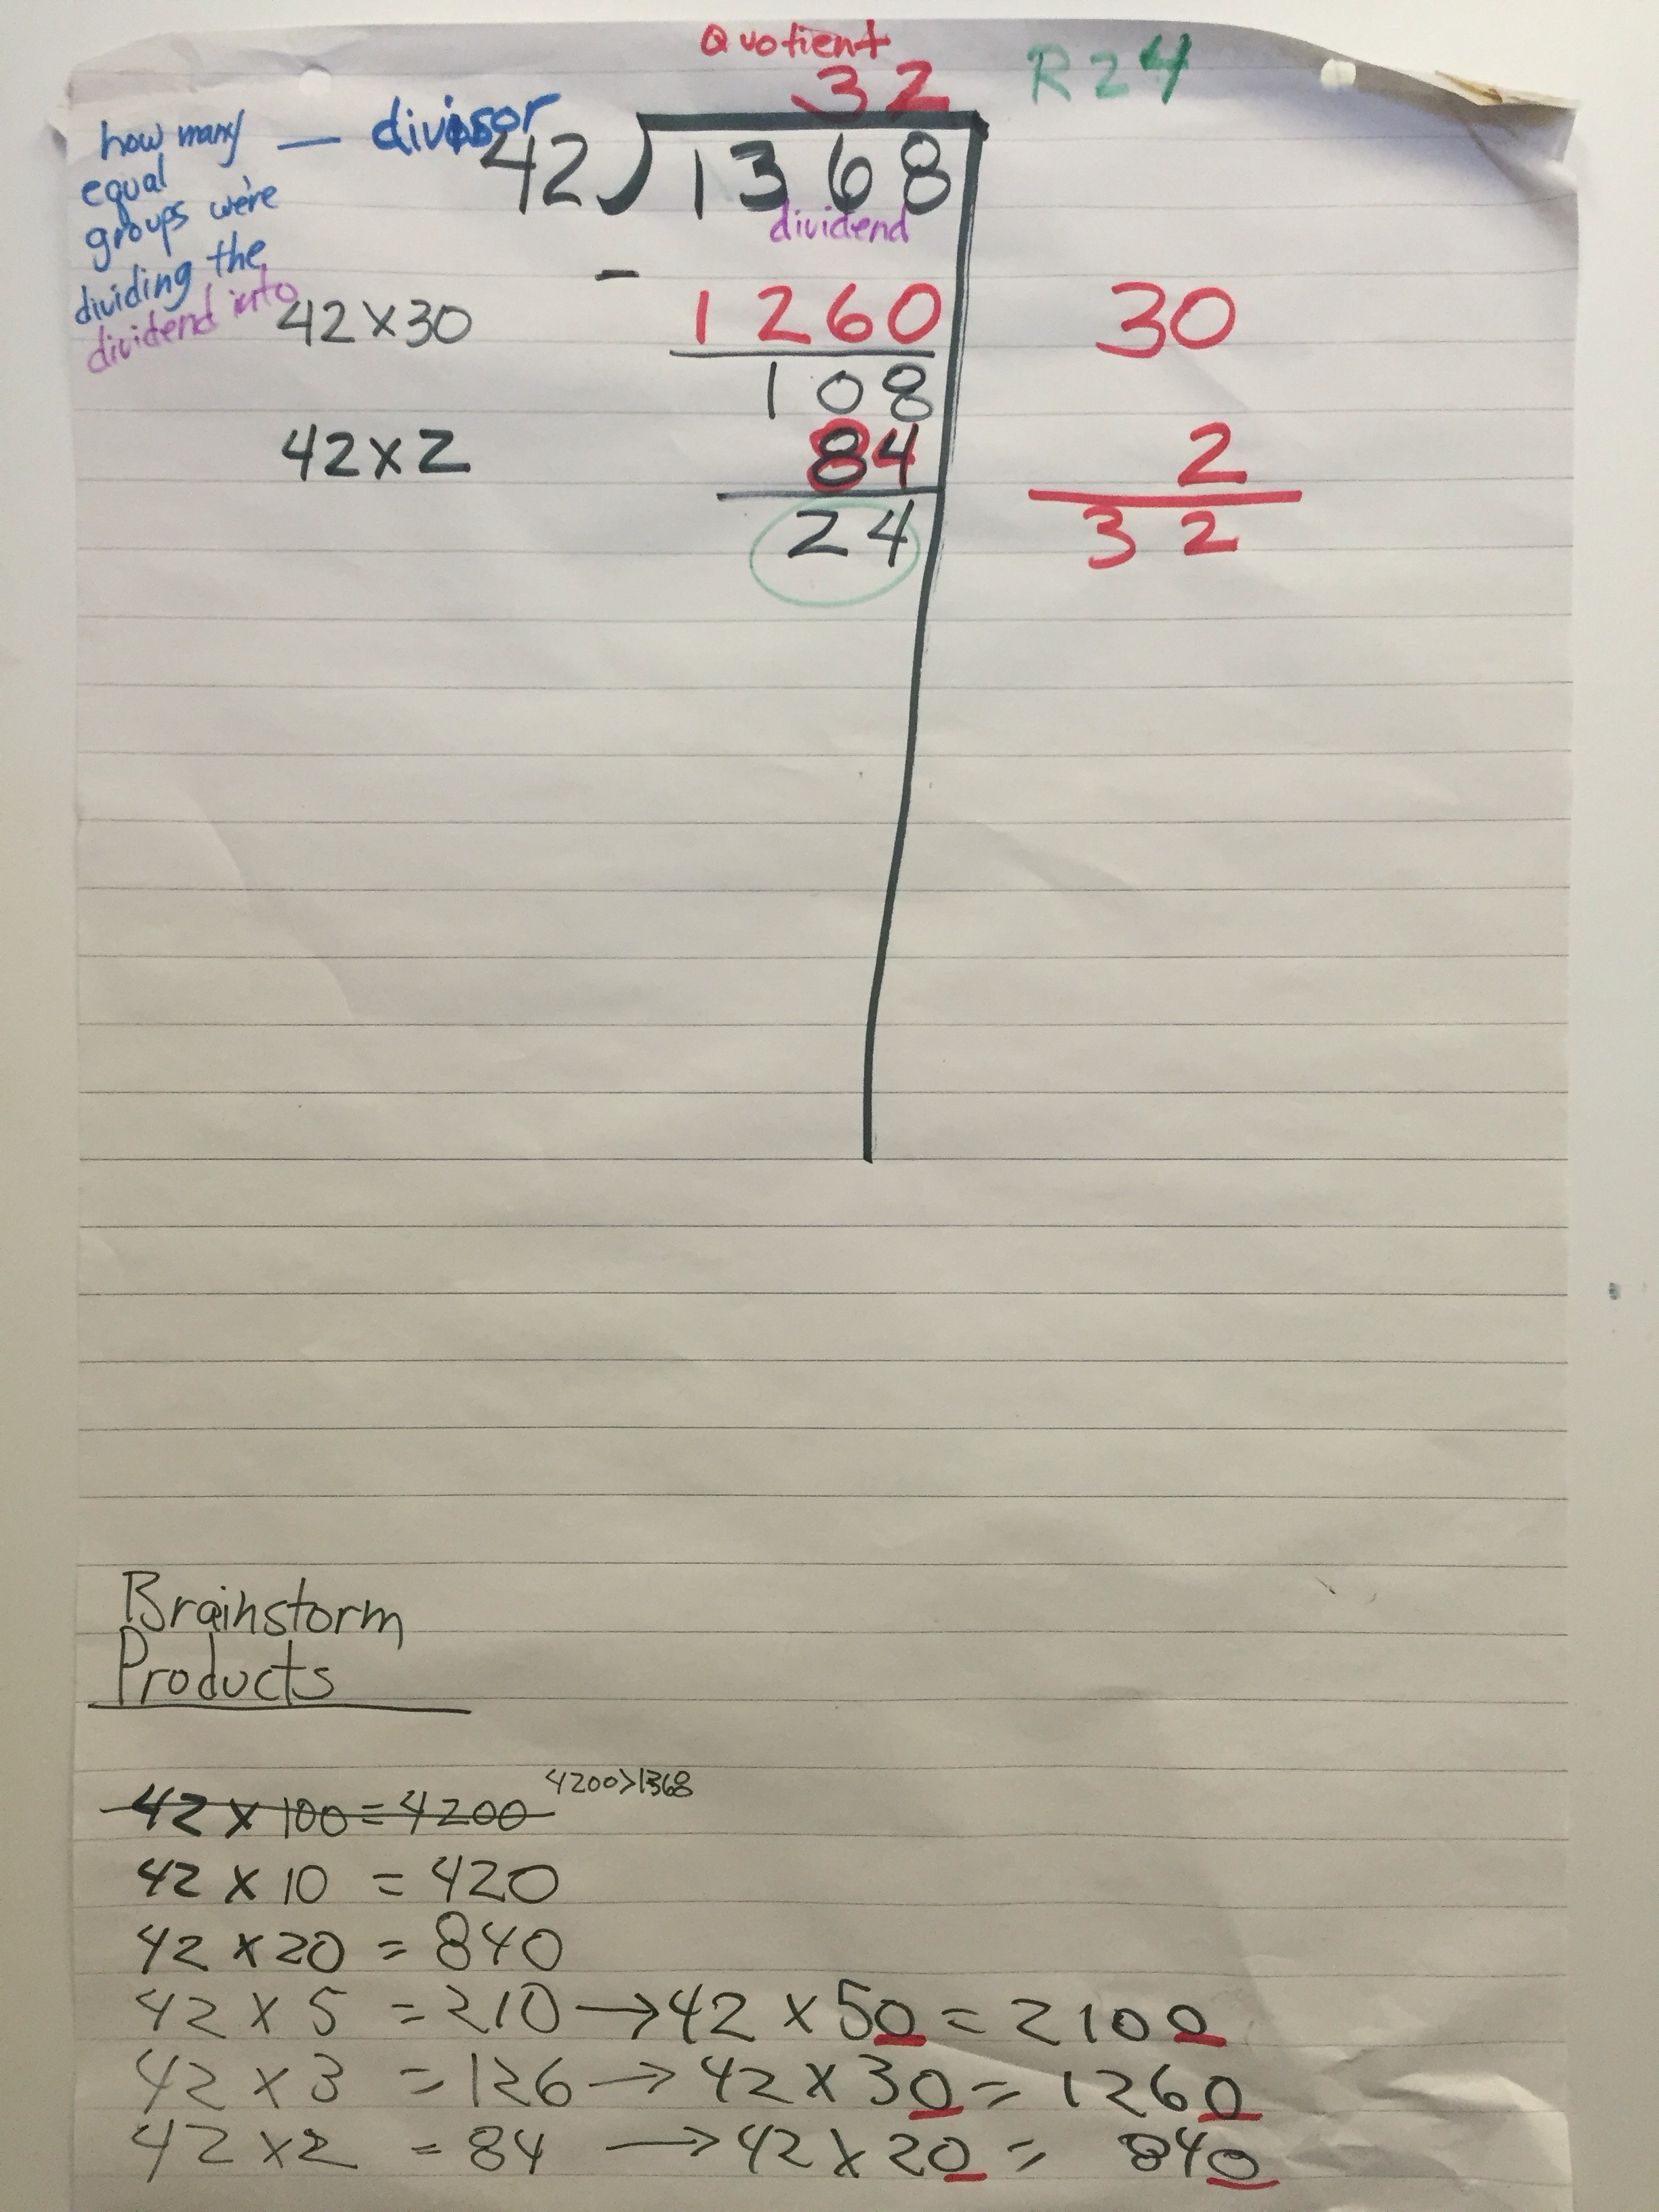 Quotient
32 R24
how many — divisor 42 1368
equal
groups we're dividend
dividing the
dividend into
−
42×30 1260 30
108
42×2 84 2
24 32
Brainstorm
Products
42 × 100 = 4200 4200>1368
42 × 10 = 420
42 × 20 = 840
42 × 5 = 210 → 42 × 50 = 2100
42 × 3 = 126 → 42 × 30 = 1260
42 × 2 = 84 → 42 × 20 = 840